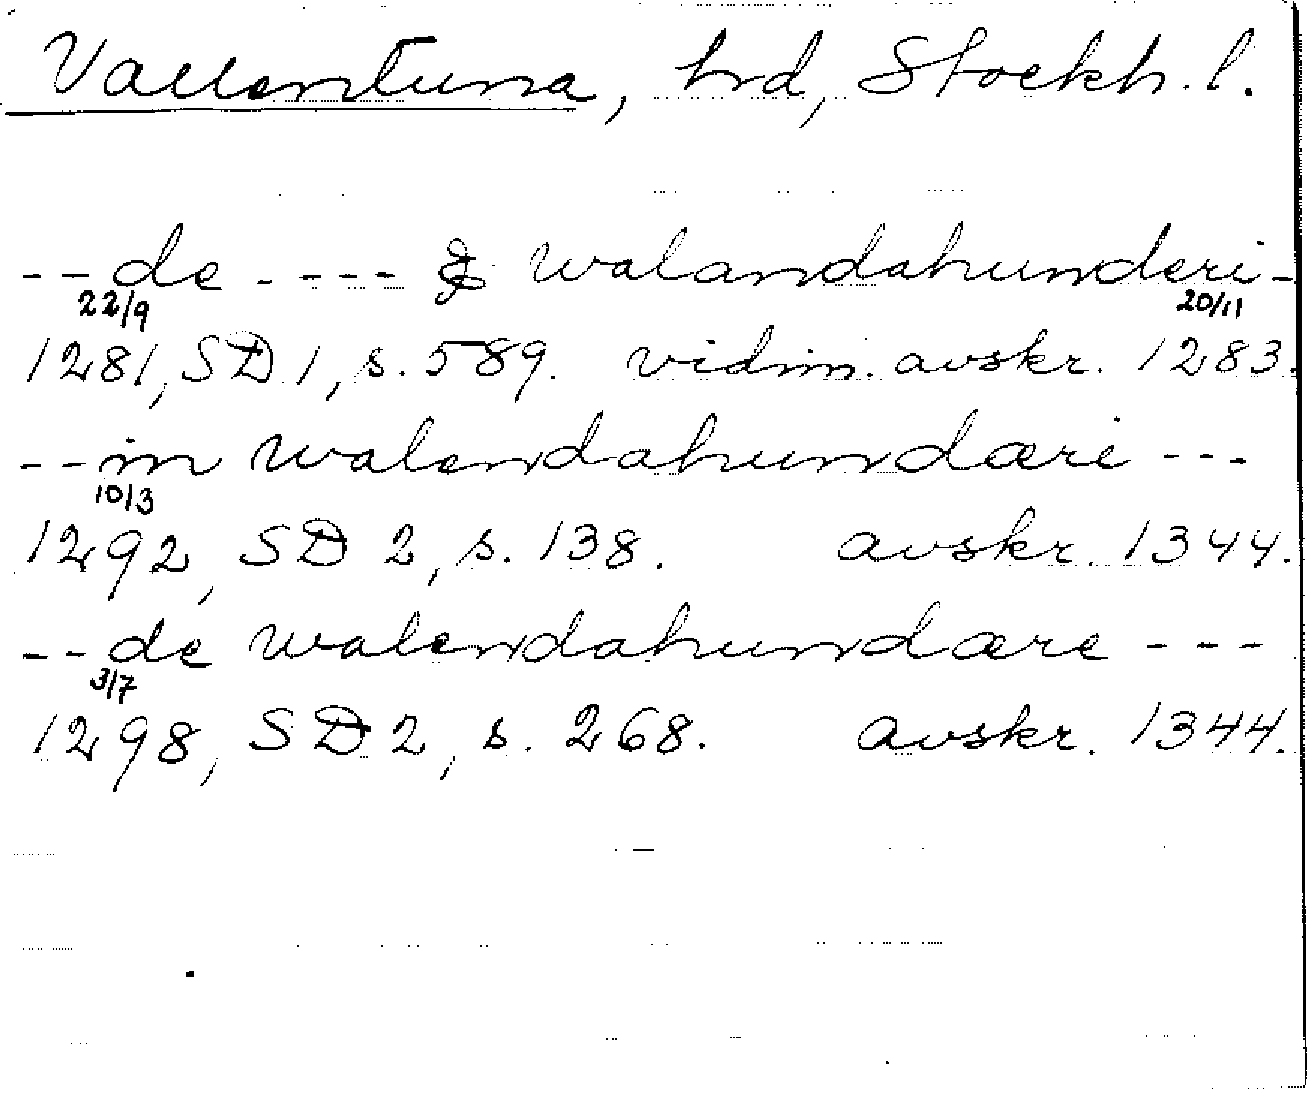 Vallentuna, hrd, Stockh. l.
--de ---- & walandahunderi-
22/9 20/11
1281, SD 1, s. 589. vidim. avskr. 1283.
--in walendahundæri ---
10/3
1292, SD 2, s. 138. avskr. 1344.
--de walendahundære ---
3/7
1298, SD 2, s. 268. avskr. 1344.